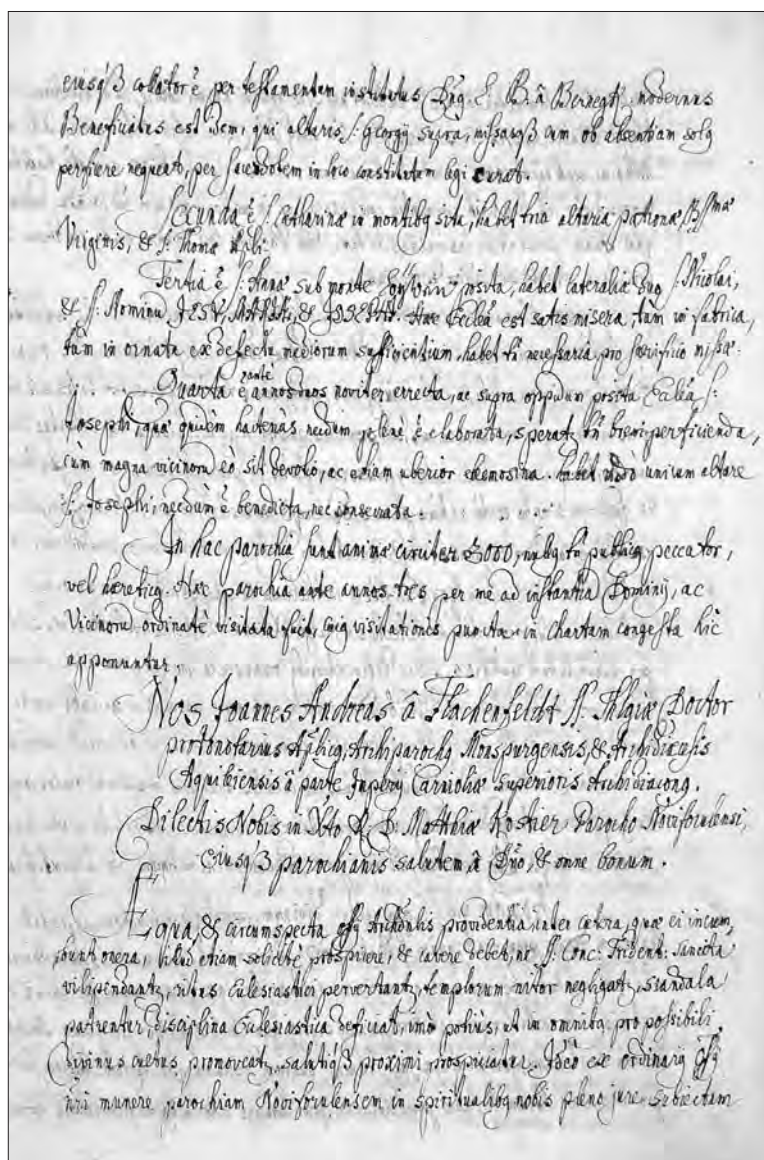 eiusq3 collator ẽ per testamentum institutus Dnq L. B. â Bernegkh, modernus
Beneficiatus est idem, qui altaris S: Georgÿ supra, missasq3 cum ob absentiam solq
perficere nequeat, per sacerdotem in loco constitutum legi curat.
Secunda ẽ S: Catharinæ in montibq sita, habet tria altaria patronæ Bssmæ
Virginis, & S: Thomæ Apli:
Tertia ẽ S: Annæ sub monte posita, habet lateralia duo S: Nicolai,
& S: Nominũ JESV, MARIÆ, & JOSEPHI. Hæc Eccleã est satis misera, tùm in fabrica,
tùm in ornatu ex defectu mediorum sufficientium, habet tñ necessaria pro sacrificio missæ.
Quarta ẽ ante annos duos noviter errecta, ac supra oppidum posita Eccleã S:
Josephi, quæ quidèm hactenùs necdum plenè ẽ elaborata, speratr tñ brevi perficienda,
cùm magna vicinorũ eò sit devotio, ac etiam uberior elemosina. habet modò unicum altare
S: Josephi, necdùm ẽ benedicta, nec consecrata.
In hac parochia sunt animæ circiter 3000, nullq tñ publicq peccator,
vel hæreticq. Hæc parochia ante annos tres per me ad instantiã Dominÿ, ac
Vicinorũ ordinatè visitata fuit, cuiq visitationis puncta in chartam congesta hic
apponuntur.
Nos Joannes Andreas â Flachenfeldt SS. Thlgiæ Doctor
protonotarius Aplicq, Archiparochq Monspurgensis, & Archidiæcesis
Aquileiensis â parte Imperÿ Carnioliæ Superioris Archidiaconq.
Dilectis Nobis in Xpto R. D. Matthiæ Kosher Parocho Noviforulensi,
Eiusq3 parochianis salutem â Dño, & omne bonum.
Æqua, & circumspecta offÿ Archidnlis providentia, inter cætera, quæ ei incum,
bunt onera, illud etiam solicitè prospicere, & cavere debet, ne SS: Conc: Trident: sancita
vilipendantr, ritus Eclesiastici pervertantr, templorum nitor negligatr, scandala
patrentur, disciplina Eclesiastica deficiat, imò potiùs, ut in omnibq pro possibili
Divinus cultus promoveatr, salutiq3 proximi prospiciatur. Ideò ex ordinarÿ offÿ
ñri munere parochiam Noviforulensem in spiritualibq nobis pleno jure subiectam